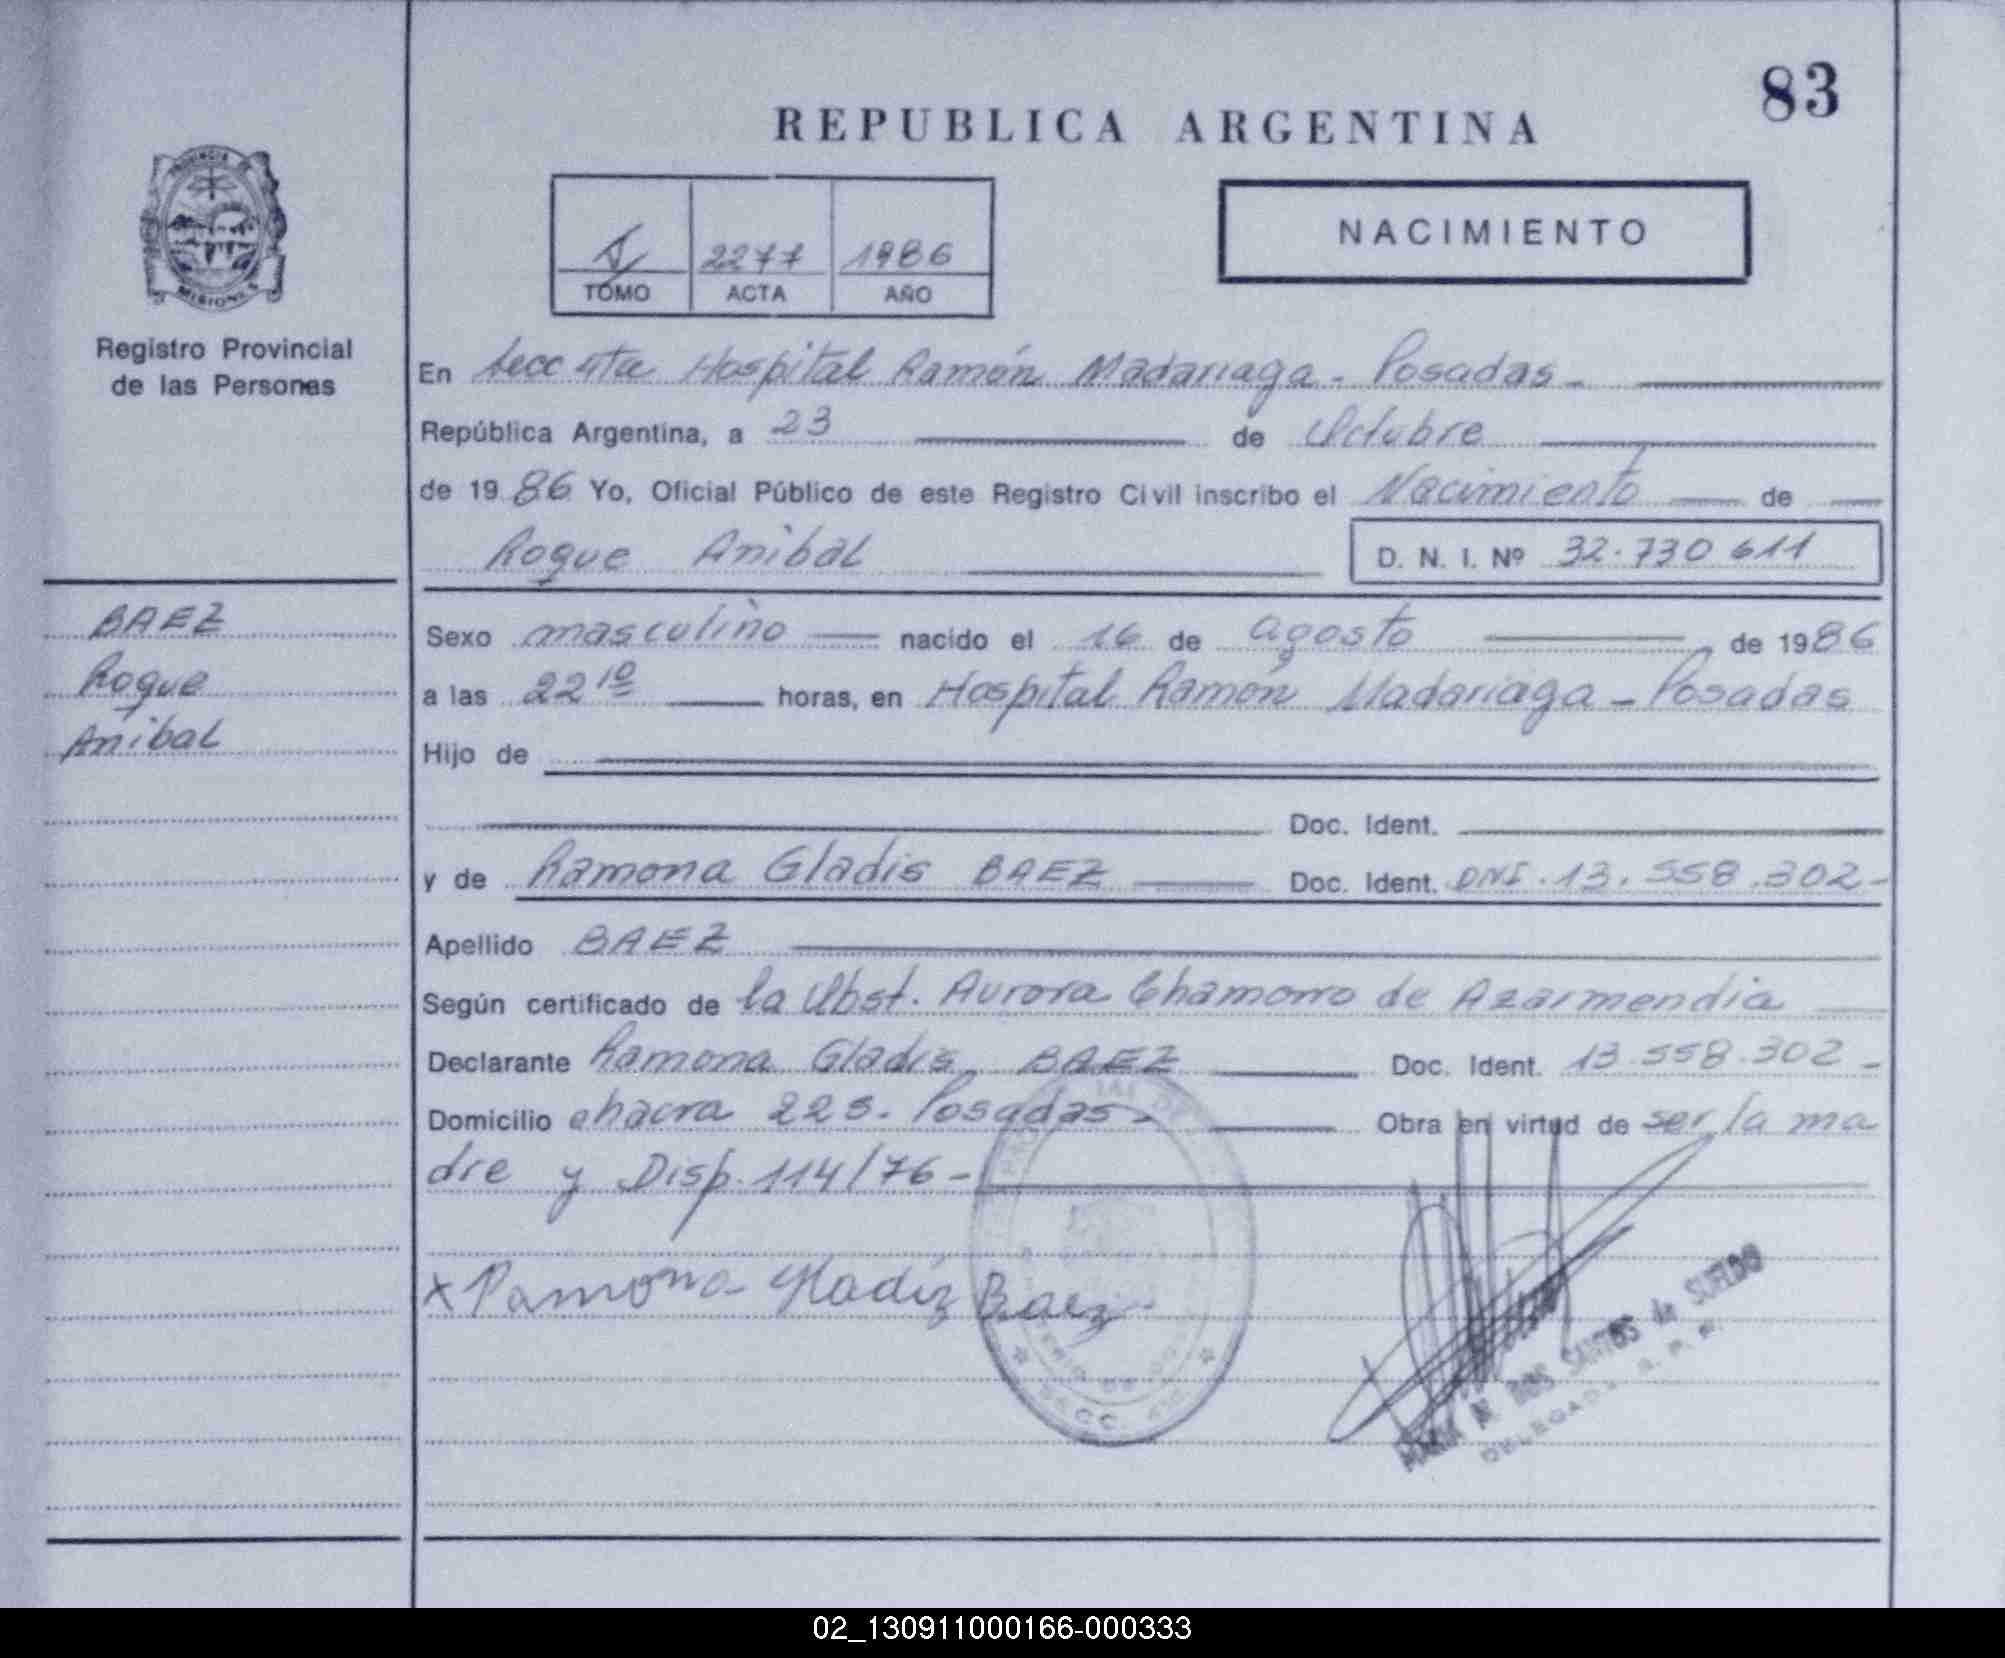 83
REPUBLICA ARGENTINA
PROVINCIA
MISIONES
NACIMIENTO
2277 1986
TOMO ACTA AÑO
Registro Provincial
de las Personas
En Secc 4ta Hospital Ramón Madariaga - Posadas -
República Argentina, a 23 de Octubre
de 1986 Yo, Oficial Público de este Registro Civil inscribo el Nacimiento de
Roque Anibal D. N. I. Nº 32.730 611
BAEZ
Roque
Anibal
Sexo masculino nacido el 16 de agosto de 1986
a las 22 10 horas, en Hospital Ramón Madariaga - Posadas
Hijo de
Doc. Ident.
y de Ramona Gladis BAEZ Doc. Ident. DNI. 13.558.302-
Apellido BAEZ
Según certificado de la Obst. Aurora Chamorro de Azarmendia
Declarante Ramona Gladis BAEZ Doc. Ident. 13.558.302-
Domicilio chacra 225. Posadas - Obra en virtud de ser la ma
dre y Disp. 114/76 -
x Ramona Gladiz Baez
SECC. 4ta
DOS SANTOS de SUELDO
DELEGADA R. P. P.
02_130911000166-000333